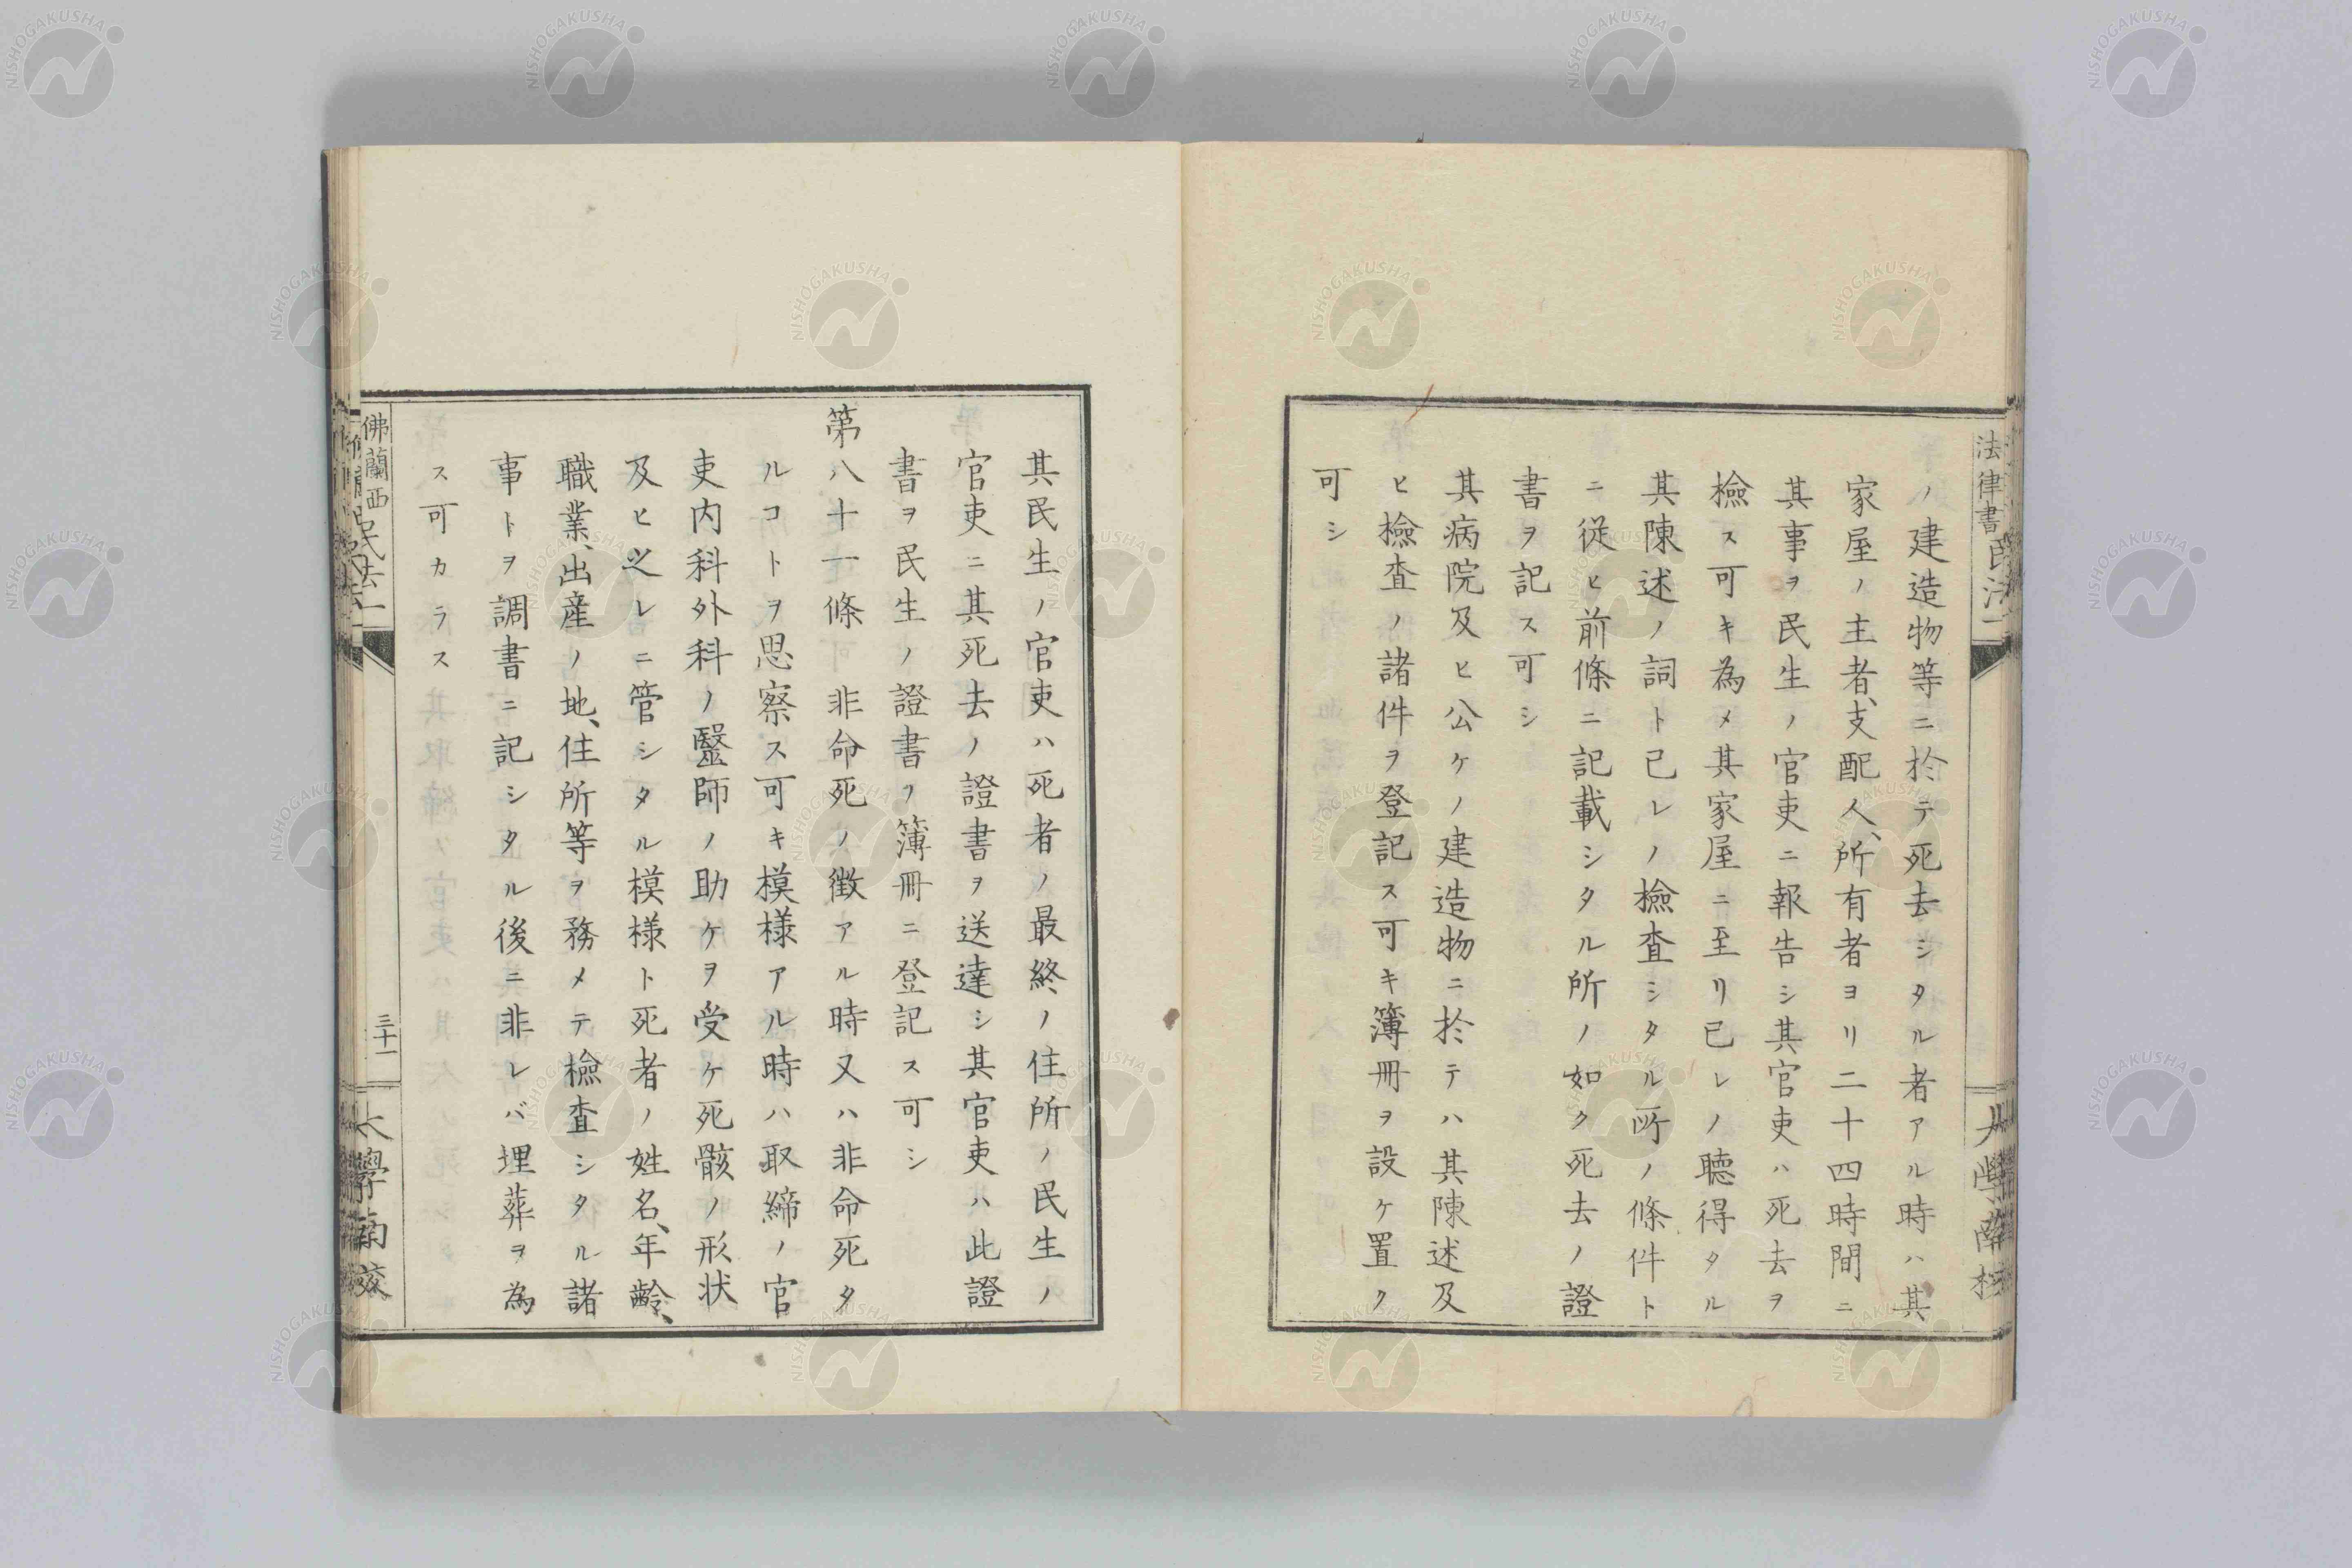 法律書民法一
大學南校
ノ建造物等ニ於テ死去シタル者アル時ハ其
家屋ノ主者、支配人、所有者ヨリ二十四時間ニ
其事ヲ民生ノ官吏ニ報告シ其官吏ハ死去ヲ
檢ス可キ為メ其家屋ニ至リ已レノ聴得タル
其陳述ノ詞ト已レノ檢査シタル所ノ條件ト
ニ従ヒ前條ニ記載シタル所ノ如ク死去ノ證
書ヲ記ス可シ
其病院及ヒ公ケノ建造物ニ於テハ其陳述及
ヒ檢査ノ諸件ヲ登記ス可キ簿冊ヲ設ケ置ク
可シ
其民生ノ官吏ハ死者ノ最終ノ住所ノ民生ノ
官吏ニ其死去ノ證書ヲ送達シ其官吏ハ此證
書ヲ民生ノ證書ノ簿冊ニ登記ス可シ
第八十一條 非命死ノ徴アル時又ハ非命死タ
ルコトヲ思察ス可キ模様アル時ハ取締ノ官
吏内科外科ノ醫師ノ助ケヲ受ケ死骸ノ形状
及ヒ之レニ管シタル模様ト死者ノ姓名、年齢、
職業、出産ノ地、住所等ヲ務メテ檢査シタル諸
事トヲ調書ニ記シタル後ニ非レバ埋葬ヲ為
ス可カラス
佛蘭西民法一
三十一
大學南校